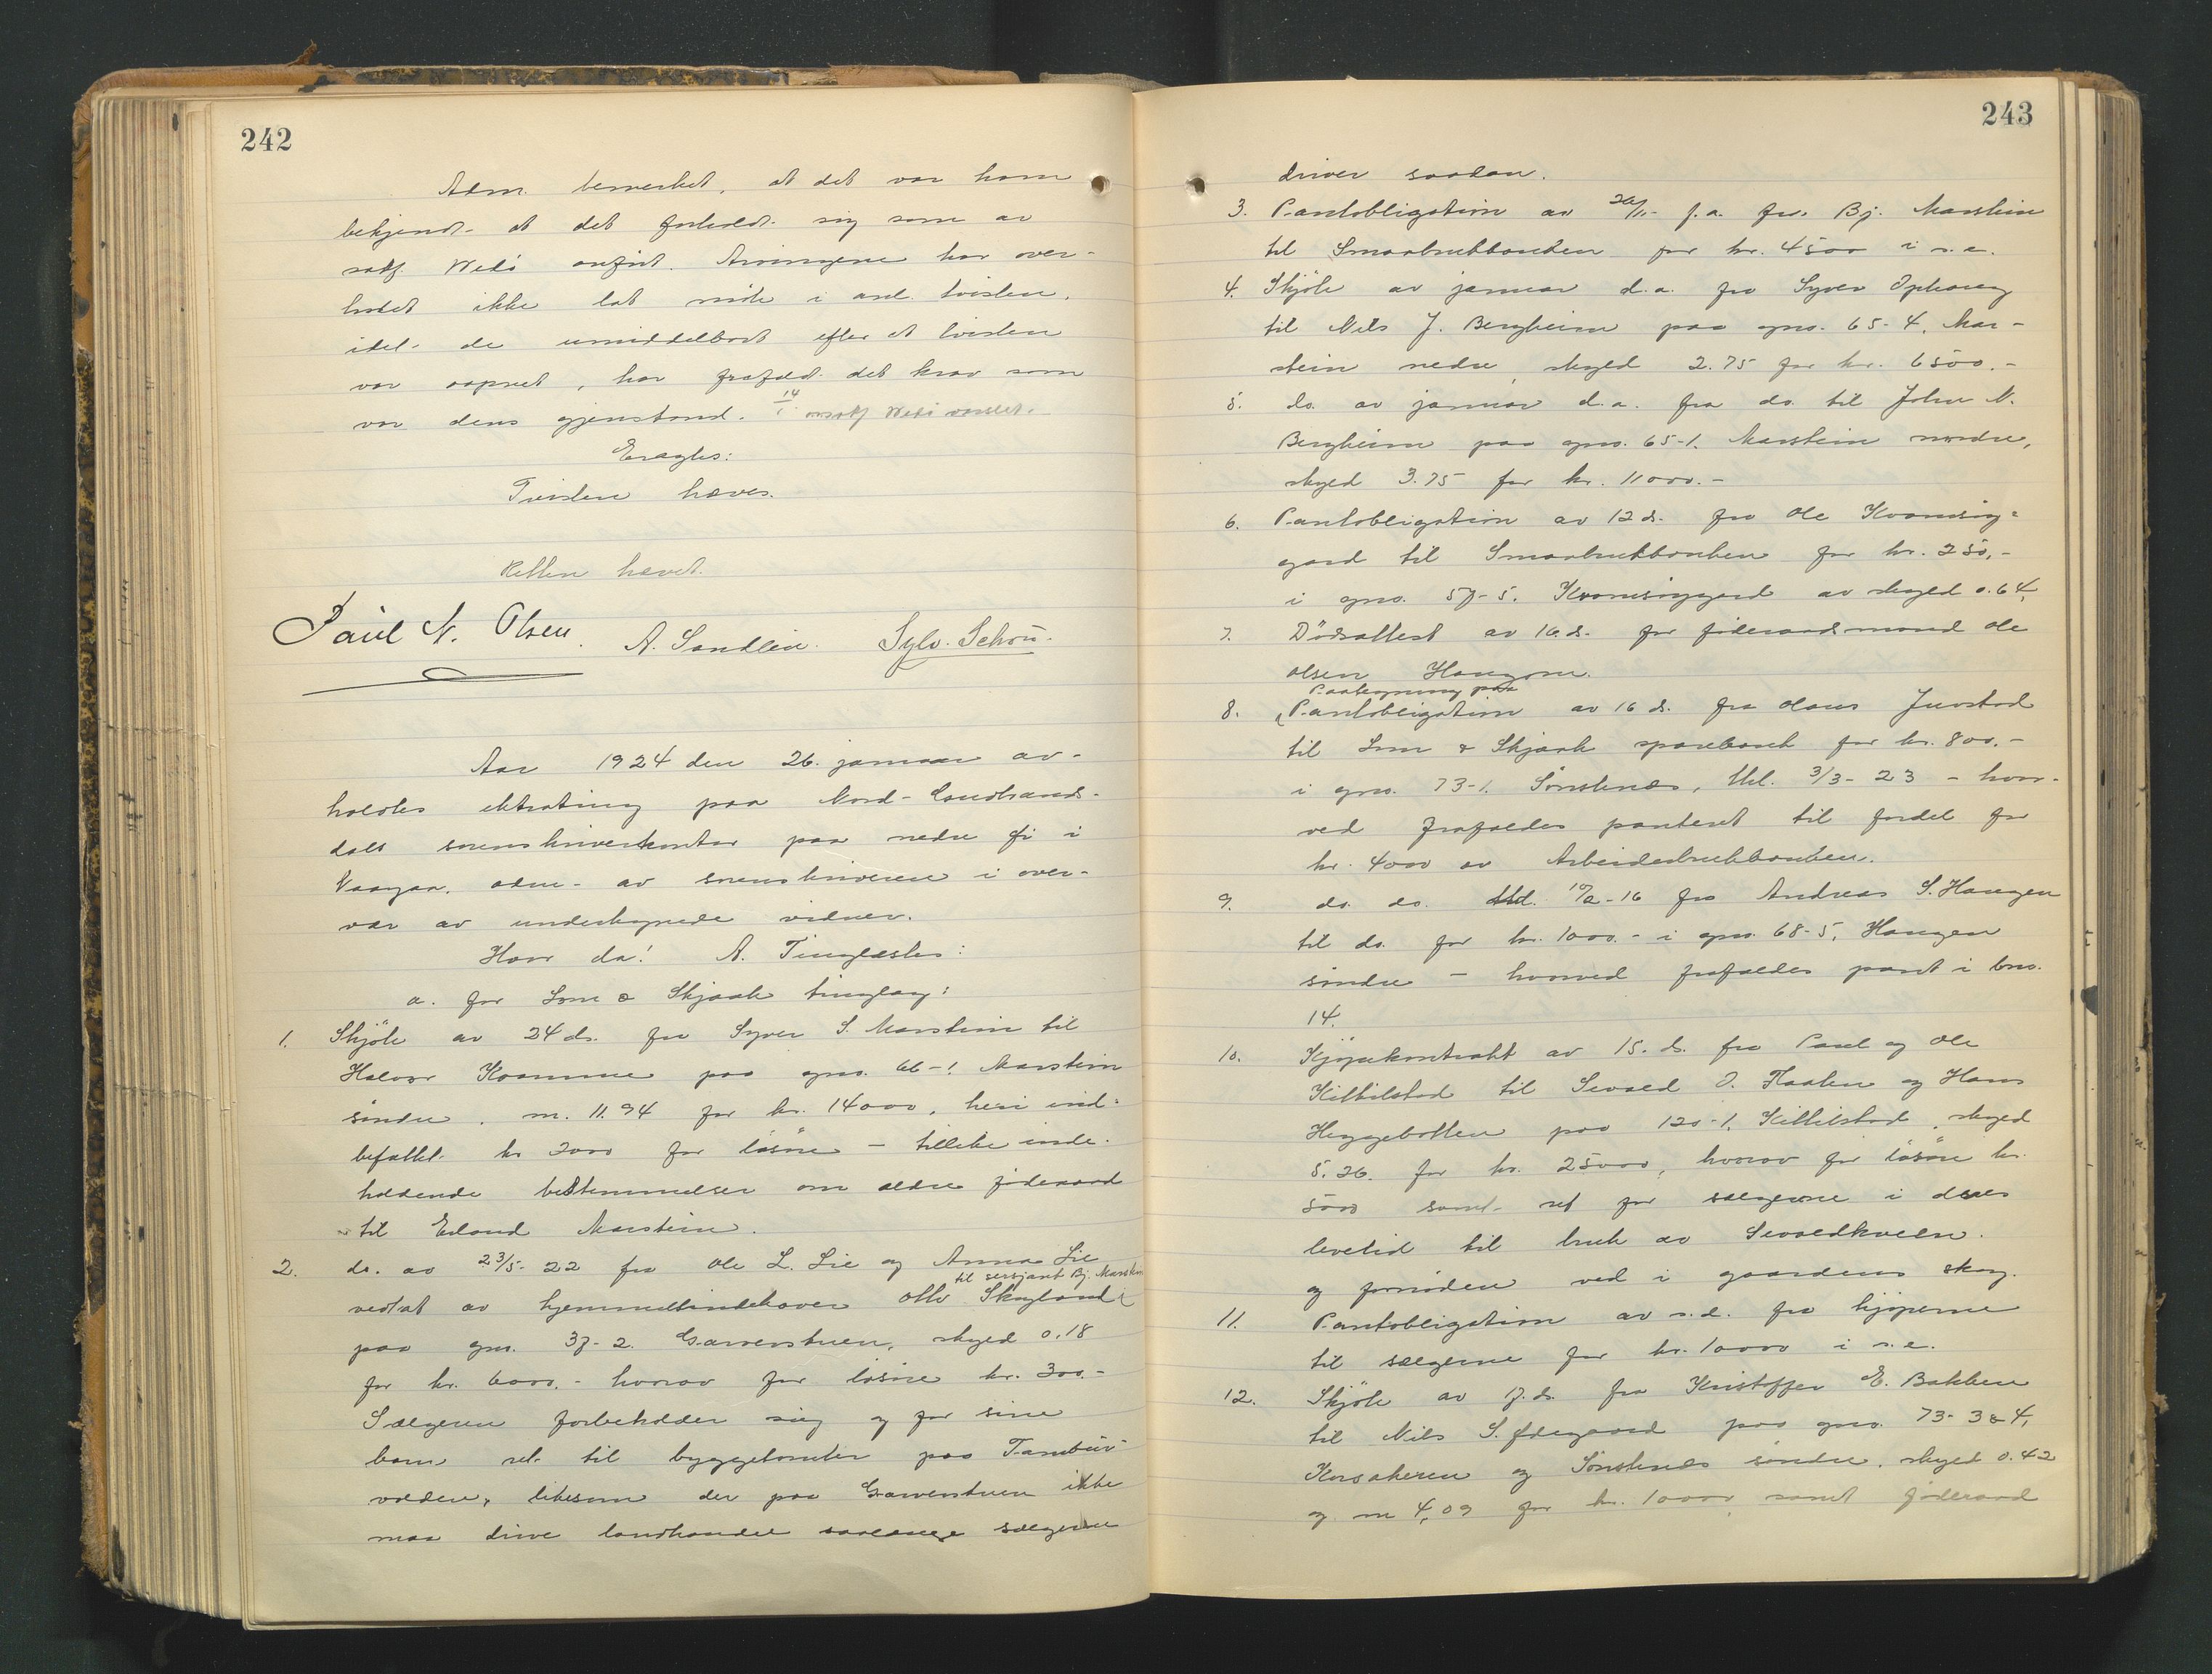 242
Adm. bemerket, at det var ham
bekjendt at det forholdt sig som av
sakf. Weðö anført. Arvingene har over-
hodet ikke lat møte i anl. tvisten,
idet de umiddelbart efter at tvisten
var aapnet, har frafaldt det krav som
var dens gjenstand.
Eragtes:
Tvisten hæves.
Retten hævet.
Paul N. Olsen. A. Sandlien. Sylv. Schou.
Aar 1924 den 26. januar av-
holdtes ekstrating paa Nord-Gudbrands-
dals sorenskriverkontor paa nedre Øi i
Vaagaa, adm. av sorenskriveren i over-
vær av undertegnede vidner.
Hvor da! A. Tinglæstes:
a. for Lom & Skjaak tinglag:
1. Skjöte av 24 ds. fra Syver S. Marstein til
Halvor Kvamme paa gno. 66-1 Marstein
søndre, m. 11.94 for kr. 14000, heri ind-
befattet kr 2000 for løsøre - tillike inde-
holdende bestemmelser om ældre føderaad
til Erland Marstein.
2. do. av 23/5-22 fra Ole L. Lie og Anna Lie
til sersjant Bj. Marstein
vedtat av hjemmelsindehaver Otto Skogland
paa gno. 37-2. Garverstuen, skyld 0.18
for kr. 6000.- hvorav for løsøre kr. 300.-
Sælgeren forbeholder sig og for sine
barn ret til byggetomter paa Tambur-
volden, likesom der paa Garverstuen ikke
maa drive landhandel saalænge sælgerne
243
driver saadan.
3. Pantobligation av 20/11 f.a. fra Bj. Marstein
til Smaabrukbanken for kr. 4500 i s.e.
4. Skjöte av januar d.a. fra Syver Ophaug
til Nils J. Bergheim paa gno. 65-4, Mar-
stein nedre, skyld 2.75 for kr. 6500.-
5. do. av januar d.a. fra do. til John N.
Bergheim paa gno. 65-1. Marstein nordre,
skyld 3.75 for kr. 11000.-
6. Pantobligation av 12 ds. fra Ole Kvamsig-
gard til Smaabrukbanken for kr. 250,-
i gno. 57-5. Kvamsiggard av skyld 0.64,
7. Dødsattest av 16 ds. for føderaadsmand Ole
Olsen Haugom.
Paategning paa
8. Pantobligation av 16 ds. fra Olaus Juvstad
til Lom & Skjaak sparebank for kr. 800.-
i gno. 73-1. Sønstenæs, tlæl. 3/3-23 - hvor-
ved frafaldes panteret til fordel for
kr. 4000 av Arbeiderbrukbanken.
9. do. do. tlæl. 10/2-16 fra Andreas S. Haugen
til do. for kr. 1000.- i gno. 68-5, Haugen
søndre - hvorved frafaldes pant i bno.
14.
10. Kjöpekontrakt av 15. ds. fra Paul og Ole
Kittilstad til Sevald O. Flaaten og Hans
Heggebotten paa 120-1. Kittilstad, skyld
5.26. for kr. 25000, hvorav for løsøre kr.
5000 samt ret for sælgerne i deres
levetid til bruk av Sevaldkveen.
og fornøden ved i gaardens skog.
11. Pantobligation av s.d. fra kjöperne
til sælgerne for kr. 10000 i s.e.
12. Skjöte av 17. ds. fra Kristoffer E. Bakken
til Nils S. Ødegaard paa gno. 73-3 & 4,
Korsakeren og Sønstenæs søndre, skyld 0.42
og m 4,09 for kr. 10000, samt føderaad